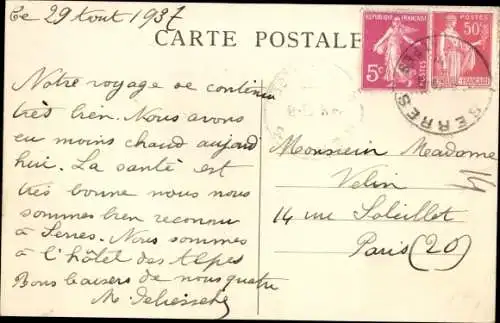 Ce 29 Aout 1937
CARTE POSTALE
REPUBLIQUE FRANÇAISE
5c
POSTES
50c
SERRES
Notre voyage se continue
très bien. Nous avons
eu moins chaud aujourd
hui. La santé est
très bonne nous nous
sommes bien reconnu
à Serres. Nous sommes
à l'hôtel des Alpes
Bons baisers de nous quatre
Monsieur Madame
Velin
14 rue Soleillet
Paris (20)